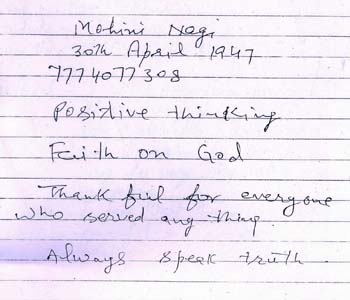 Mohini Negi
30th April 1947
7774077308
Positive thinking
Faith on God
Thank ful for everyone
who served any thing.
Always speak truth.